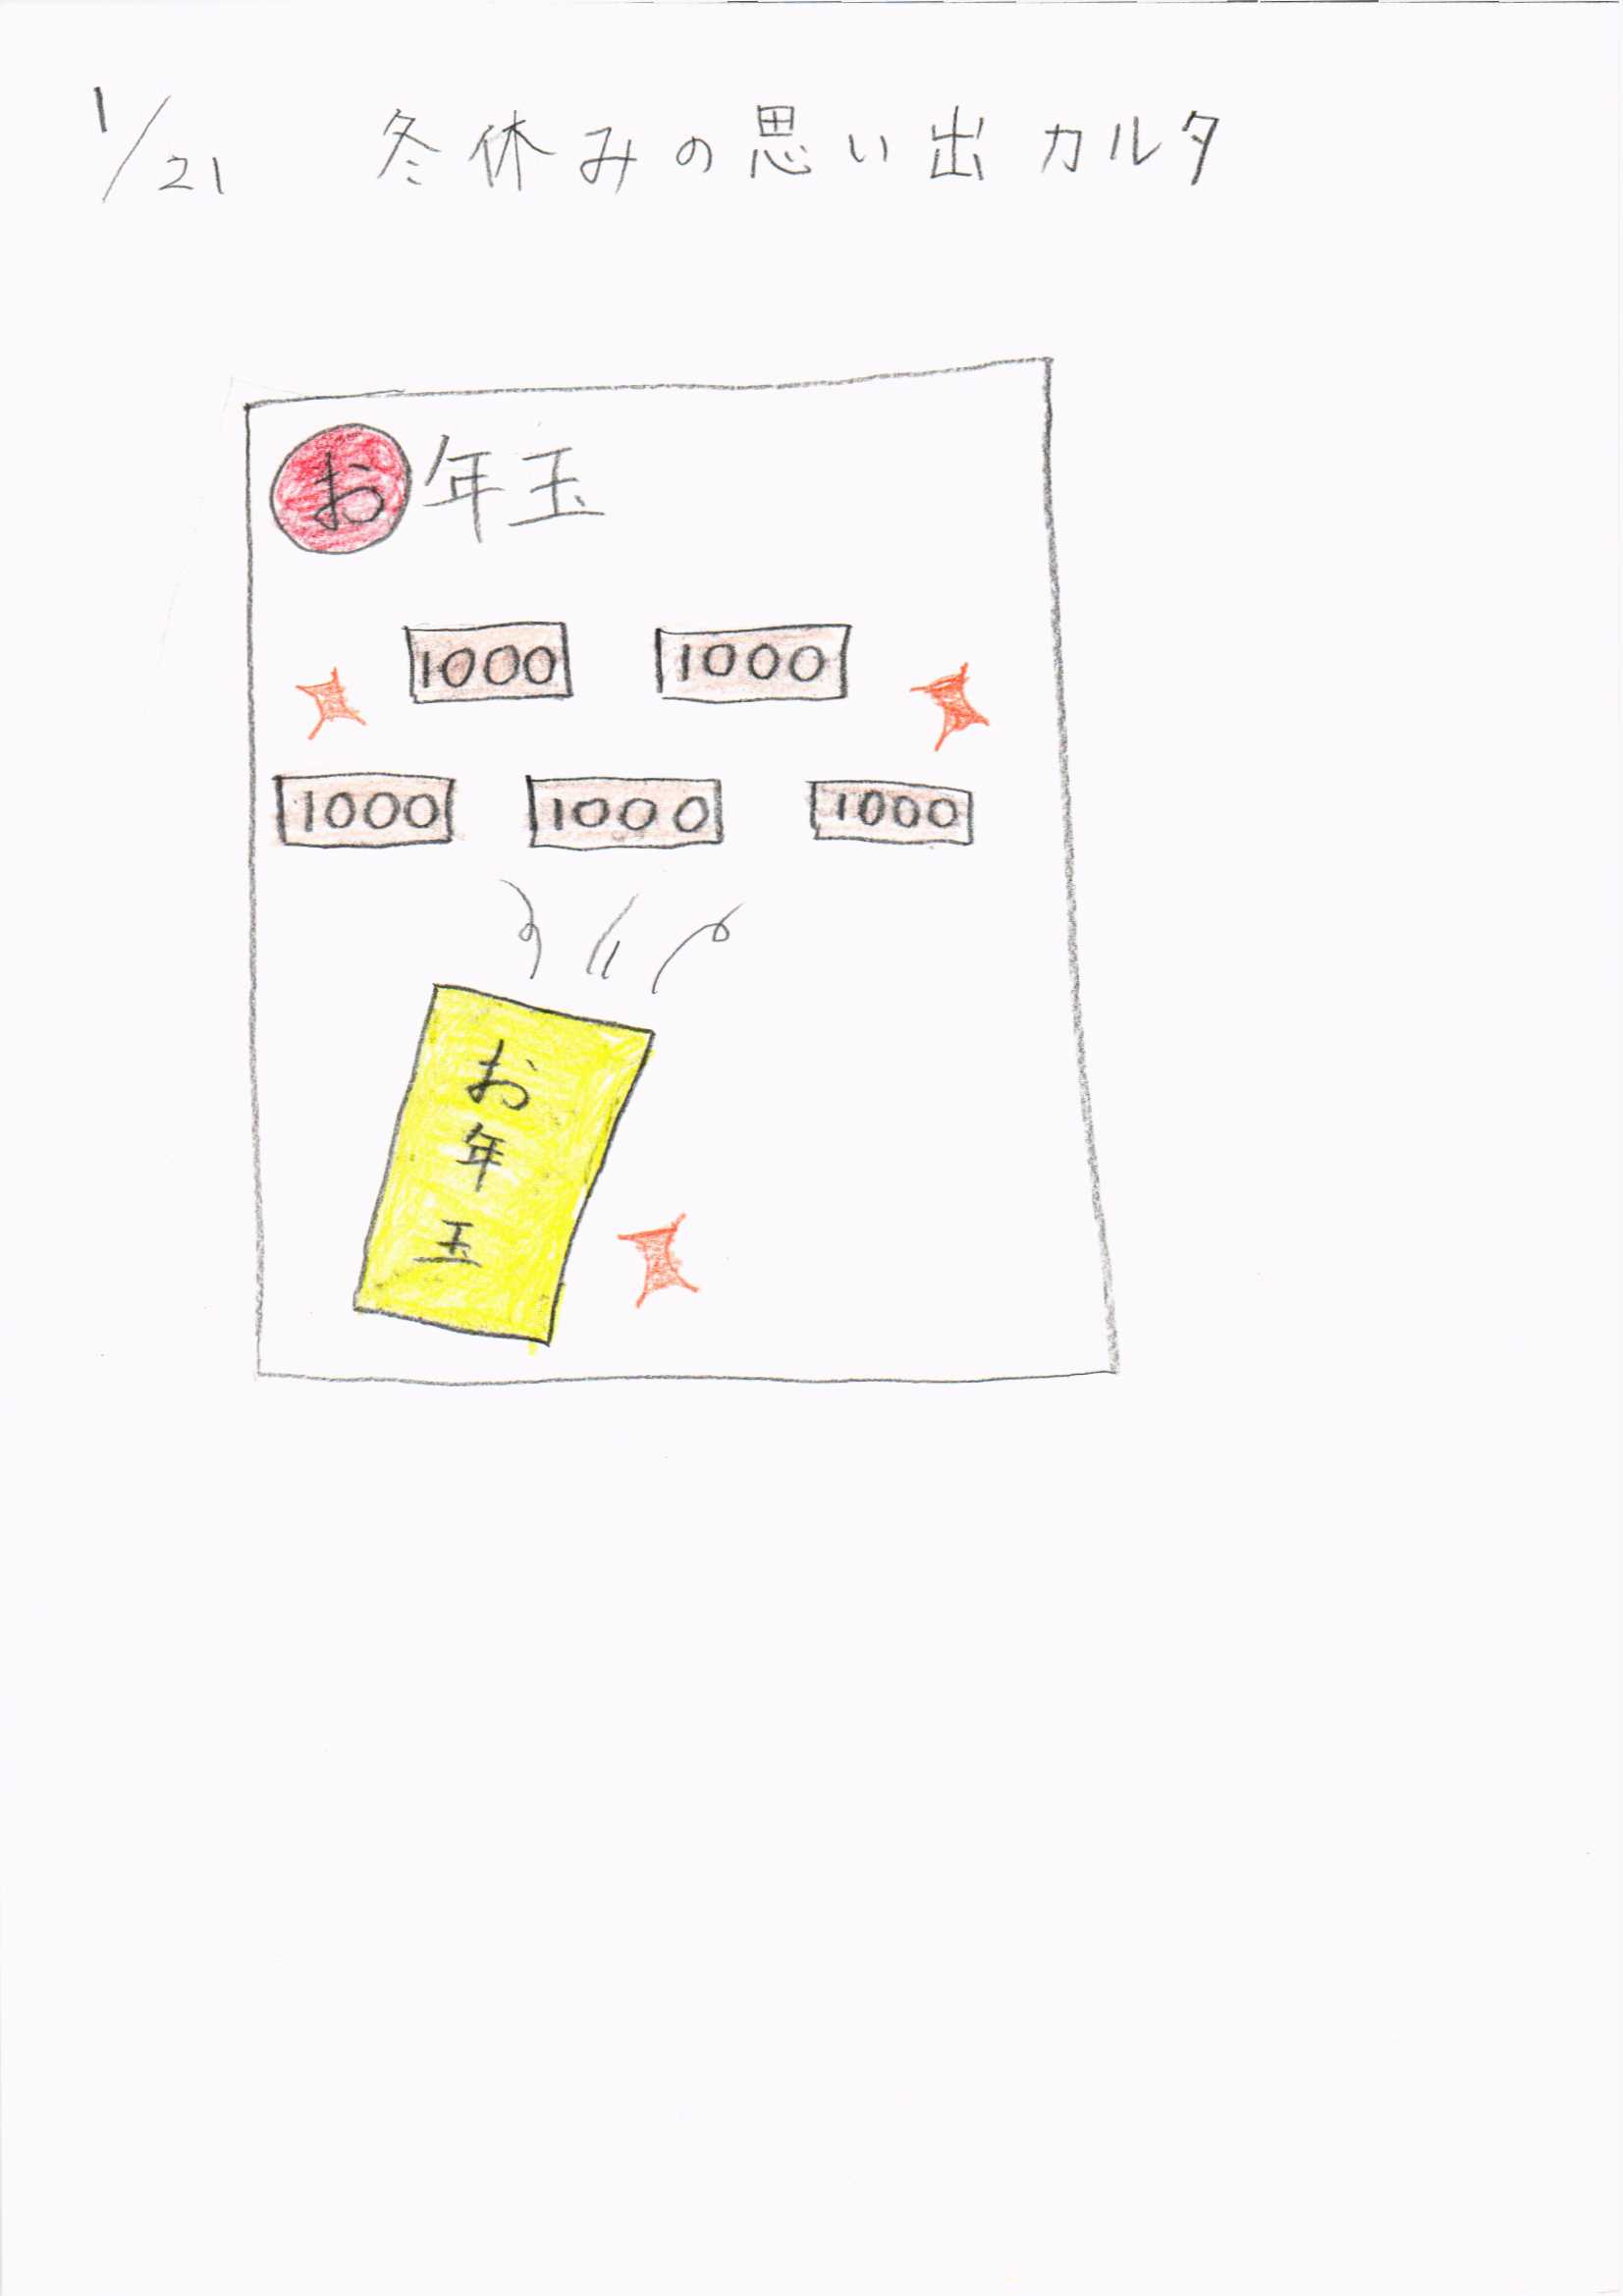 1/21 冬休みの思い出カルタ
お年玉
1000 1000
1000 1000 1000
お年玉